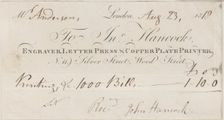 Mr Anderson, London, Aug 23, 1818
To Jno. Hancock,
ENGRAVER, LETTER PRESS & COPPER PLATE PRINTER,
Silver Street, Wood Street
Printing 1000 Bills 1 10 0
John Hancock